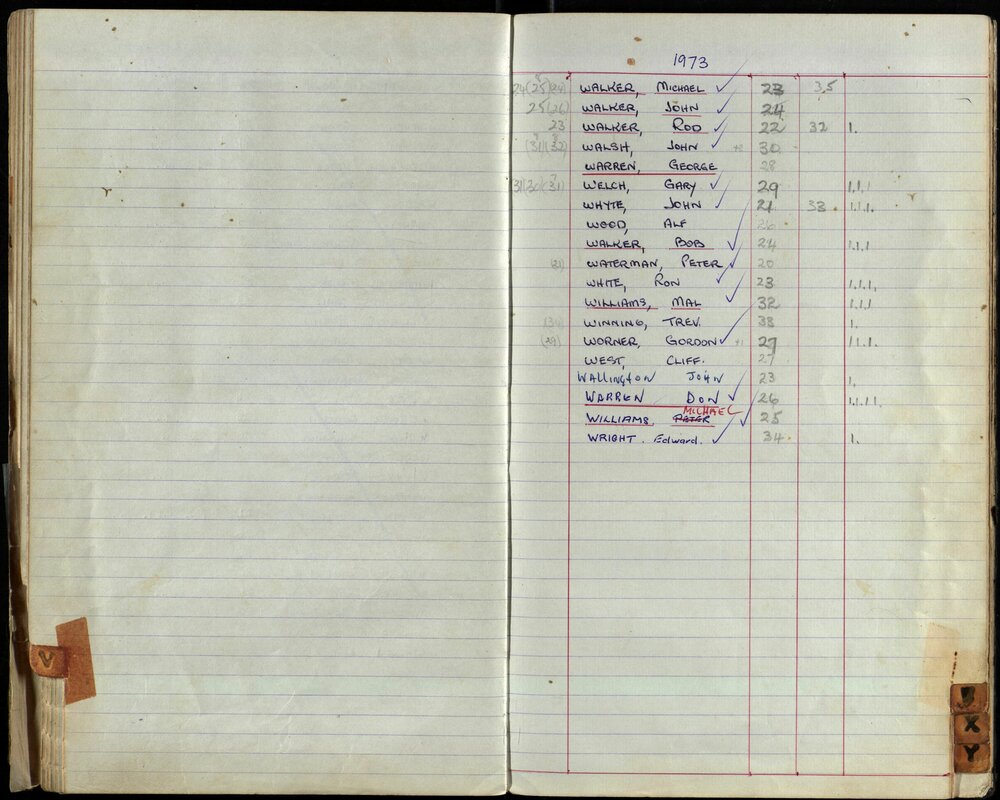 1973
WALKER, MICHAEL ✓ 23 35
25(26) WALKER, JOHN ✓ 24
23 WALKER, ROD ✓ 22 32 1.
(31)(32) WALSH, JOHN ✓ 30
WARREN, GEORGE 28
WELCH, GARY ✓ 29 1.1.1
WHYTE, JOHN ✓ 21 33 1.1.1.
WOOD, ALF 26
WALKER, BOB ✓ 24 1.1.1
(21) WATERMAN, PETER ✓ 20
WHITE, RON ✓ 23 1.1.1.
WILLIAMS, MAL ✓ 32 1.1.1
WINNING, TREV. 33 1.
(39) WORNER, GORDON ✓ 27 1.1.1.
WEST, CLIFF. 27
WALLINGTON JOHN 23 1.
WARREN DON ✓ 26 1.1.1.1.
MICHAEL
WILLIAMS. PETER ✓ 25
WRIGHT. Edward. ✓ 34 1.
V
X
Y